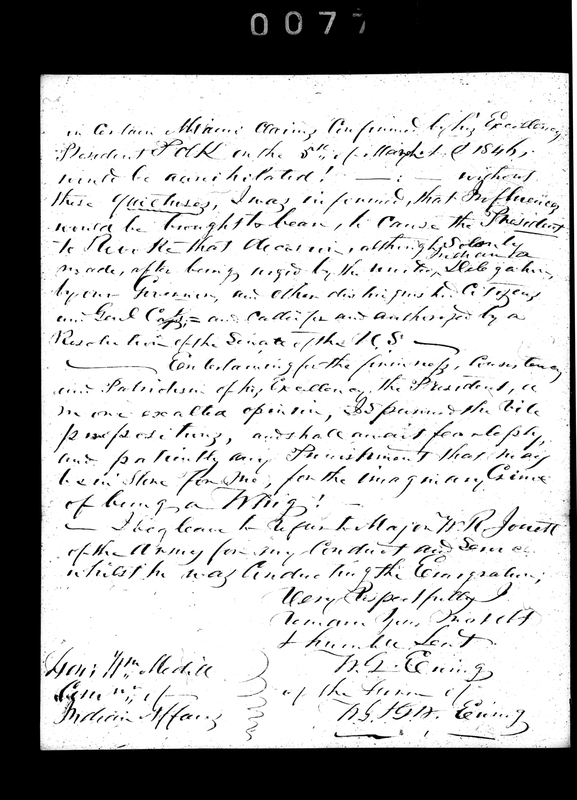 0077
in Certain Miami Claims Confirmed by his Excellency
President Polk on the 5th of March 1846,
would be annihilated! — : — without
these quietuses, I was informed, that Influences
would be brought to bear, to cause the President
to Revoke that decision, although Solemnly
made, after being urged by the united Indiana Delegation,
by our Governor, and other distinguished Citizens
and Genl Cass = and called for and authorized by a
Resolution of the Senate of the U.S —
— Entertaining for the firmness, Consistency
and Patriotism of his Excellency the President,
one exalted opinion, I spurned the vile
propositions, and shall await fearlessly,
and patiently any Punishment that may
be in Store for me, for the imaginary Crime
of being a Whig! —
— I beg leave to refer to Major W. R. Jouett
of the Army for my Conduct and
whilst he was Conducting the Emigration;
Very Respectfully I
remain your most obt
& humble Servt
W. G. Ewing
of the firm of
W.G. & G.W. Ewing
Hon: Wm Medill
Comr of
Indian Affairs